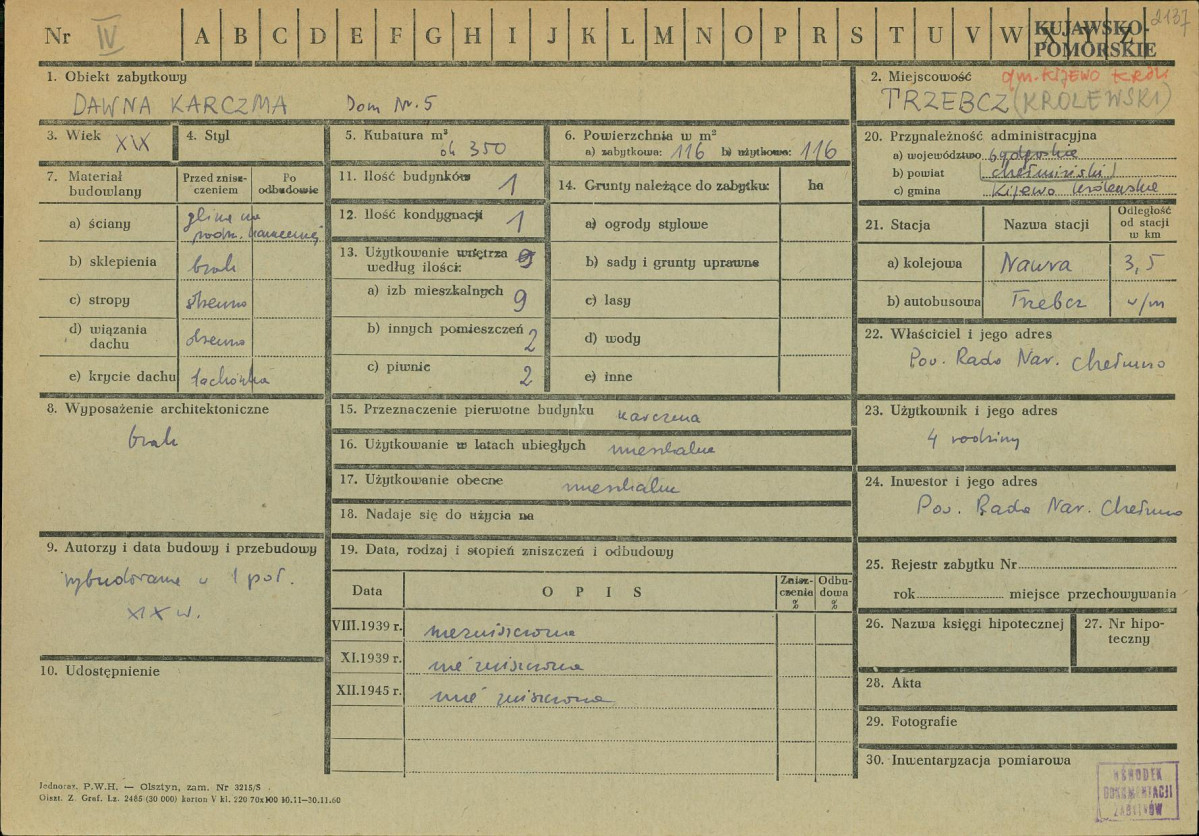 Nr IV A B C D E F G H I J K L M N O P R S T U V W X Y Z 2137
KUJAWSKO-
POMORSKIE
1. Obiekt zabytkowy
DAWNA KARCZMA Dom Nr. 5
2. Miejscowość gm. KIJEWO KRÓL
TRZEBCZ (KRÓLEWSKI)
3. Wiek XIX
4. Styl
5. Kubatura m³
ok 350
6. Powierzchnia w m²
a) zabytkowa: 116 b) użytkowa: 116
20. Przynależność administracyjna
a) województwo bydgoskie
b) powiat chełmiński
c) gmina Kijewo Królewskie
7. Materiał budowlany
Przed zniszczeniem
Po odbudowie
a) ściany glina na podm. kamiennej
b) sklepienia brak
c) stropy drewno
d) wiązania dachu drewno
e) krycie dachu dachówka
11. Ilość budynków 1
12. Ilość kondygnacji 1
13. Użytkowanie wnętrza według ilości: 9
a) izb mieszkalnych 9
b) innych pomieszczeń 2
c) piwnic 2
14. Grunty należące do zabytku: ha
a) ogrody stylowe
b) sady i grunty uprawne
c) lasy
d) wody
e) inne
21. Stacja
Nazwa stacji
Odległość od stacji w km
a) kolejowa Nawra 3,5
b) autobusowa Trzebcz w/m
22. Właściciel i jego adres
Pow. Rada Nar. Chełmno
8. Wyposażenie architektoniczne
brak
15. Przeznaczenie pierwotne budynku karczma
16. Użytkowanie w latach ubiegłych mieszkalne
17. Użytkowanie obecne mieszkalne
18. Nadaje się do użycia na
23. Użytkownik i jego adres
4 rodziny
24. Inwestor i jego adres
Pow. Rada Nar. Chełmno
9. Autorzy i data budowy i przebudowy
wybudowane w 1 poł.
XIX w.
10. Udostępnienie
19. Data, rodzaj i stopień zniszczeń i odbudowy
Data
OPIS
Zniszczenia %
Odbudowa %
VIII.1939 r. niezniszczona
XI.1939 r. nie zniszczona
XII.1945 r. nie zniszczona
25. Rejestr zabytku Nr
rok miejsce przechowywania
26. Nazwa księgi hipotecznej
27. Nr hipoteczny
28. Akta
29. Fotografie
30. Inwentaryzacja pomiarowa
OŚRODEK
DOKUMENTACJI
ZABYTKÓW
Jednoraz. P.W.H. — Olsztyn, zam. Nr 3215/S
Olszt. Z. Graf. Lz. 2485 (30 000) karton V kl. 220 70x100 10.11-30.11.60